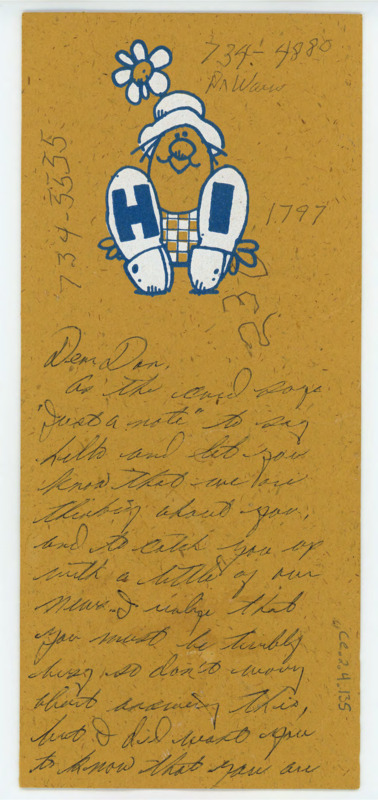 734-4880
Dr Wares
734-3535
HI
1797
Dear Don,
As the card says
"Just a note" to say
hello and let you
know that we are
thinking about you,
and to catch you up
with a little of our
news. I realize that
you must be terribly
busy so don't worry
about answering this,
but I did want you
to know that you are
cc.2.4.135